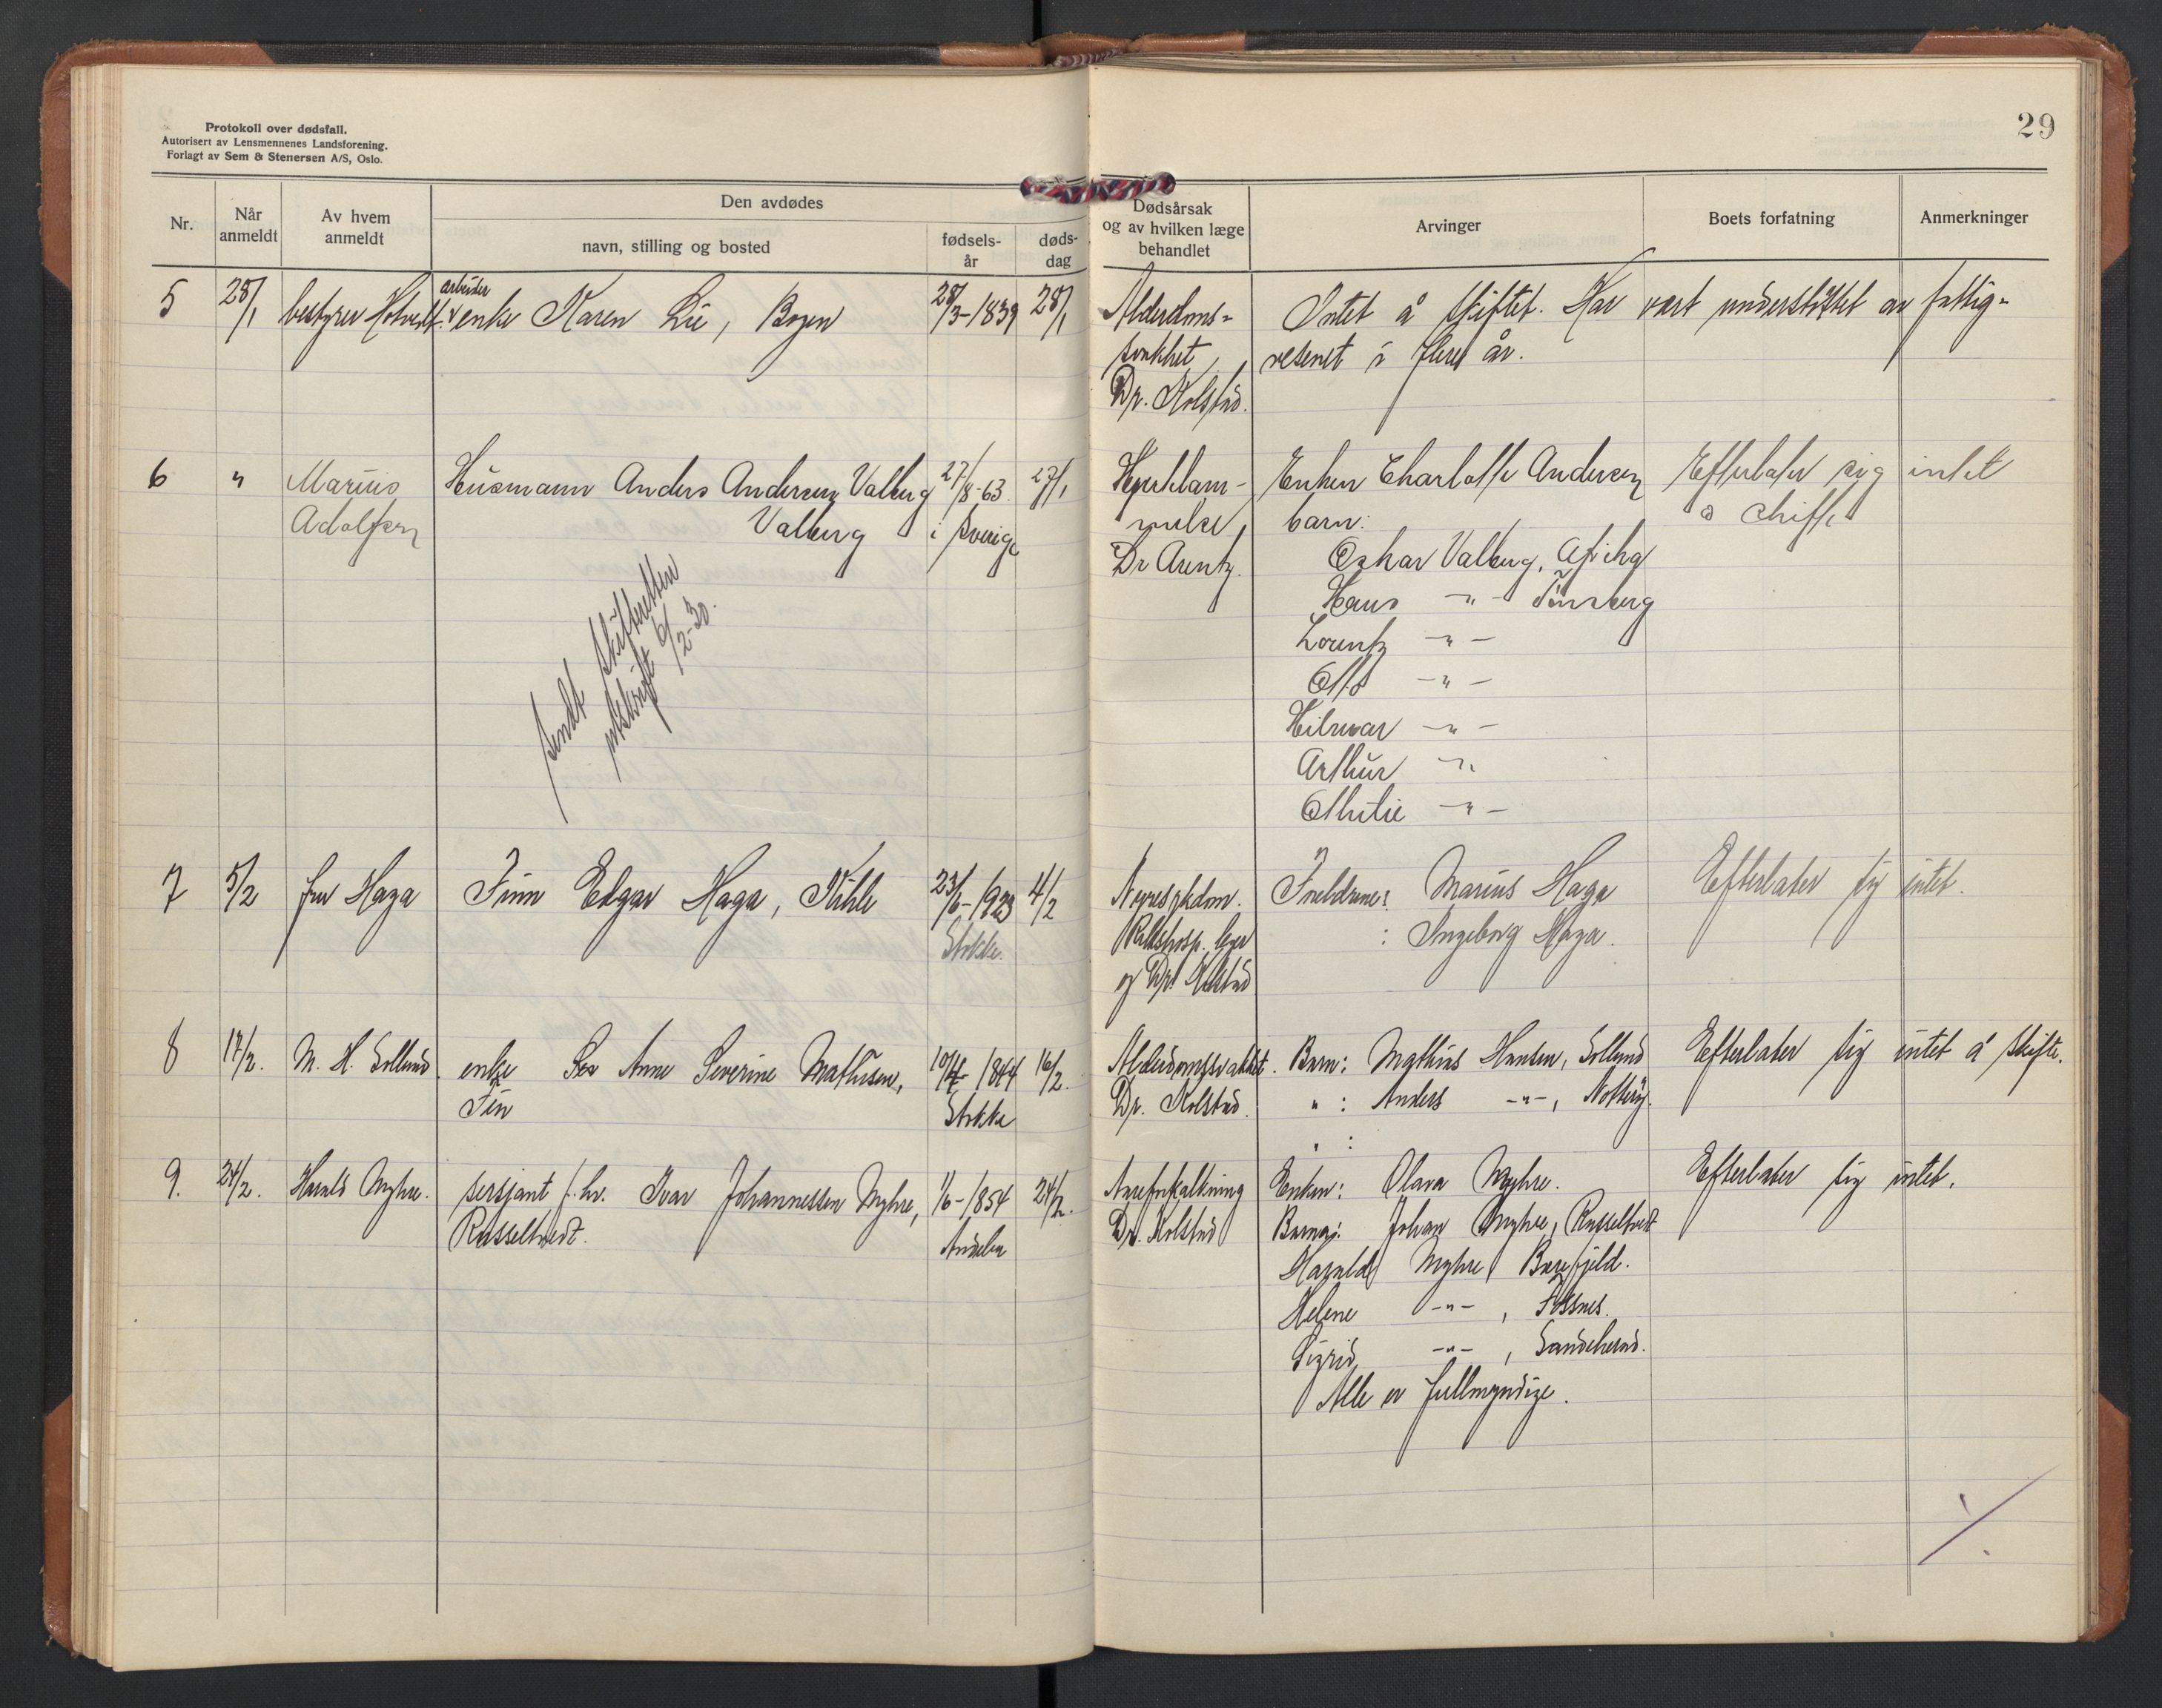 29
Protokoll over dødsfall.
Autorisert av Lensmennenes Landsforening.
Forlagt av Sem & Stenersen A/S, Oslo.
Nr.
Når anmeldt
Av hvem anmeldt
Den avdødes
navn, stilling og bosted
fødsels-år
døds-dag
Dødsårsak og av hvilken læge behandlet
Arvinger
Boets forfatning
Anmerkninger
5 28/1 bestyrer Hotvedt arbeider enke Karen Lie, Bogen 28/3-1839 28/1 Alderdoms- Intet å skiftet. Har vært understöttet av fattig-
svakhet, vesenet i flere år.
Dr. Kolstad.
6 " Marius Husmann Anders Andersen Valberg 27/8-63. 27/1 Hjertelam- Enken Charlotte Andersen Efterlater sig intet
Adolfsen Valberg i Sverige melse, barn: å skifte
Dr Arentz. Oskar Valberg,
Hans -"- Tönsberg
Lorentz -"-
Otto -"-
Hilmar -"-
Arthur -"-
Othilie -"-
sendt skifteretten
utskrift 6/2-30.
7 5/2 fru Haga Finn Edgar Haga, 23/6-1923 4/2 Foreldrene: Marius Haga Efterlater sig intet.
Stokke. Rikshosp. leger : Ingeborg Haga.
og Dr. Kolstad
8 17/2. M. H. Solland enke Anne Severine Mathisen, 10/4-1844 16/2. Alderdomssvakhet. Barn: Mathias Hansen, Solland Efterlater sig intet å skifte.
Stokke Dr. Kolstad. " : Anders -"-, Nötteröy.
" :
9. 24/2. Harald Myhre. sersjant f. hv. Ivar Johannessen Myhre, 1/6-1854 24/2. Åreforkalkning Enken: Olava Myhre. Efterlater sig intet.
Råsseltvedt. Andebu Dr. Kolstad Barna: Johan Myhre, Råsseltvedt
Harald Myhre
Helene -"-, Fossnes.
Sigrid -"-, Sandeherad.
Alle er fullmyndige.